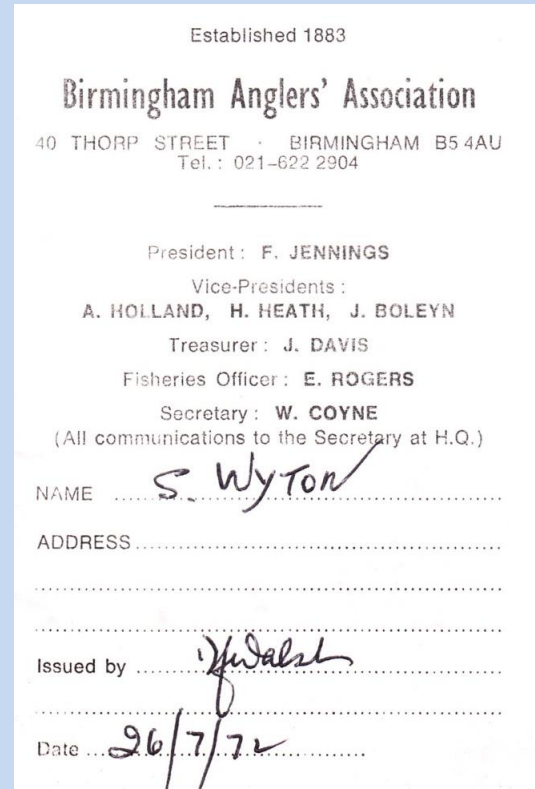 Established 1883
Birmingham Anglers' Association
40 THORP STREET · BIRMINGHAM B5 4AU
Tel. : 021-622 2904
President : F. JENNINGS
Vice-Presidents :
A. HOLLAND, H. HEATH, J. BOLEYN
Treasurer : J. DAVIS
Fisheries Officer : E. ROGERS
Secretary : W. COYNE
(All communications to the Secretary at H.Q.)
NAME S. WYTON
ADDRESS
Issued by Walsh
Date 26/7/72